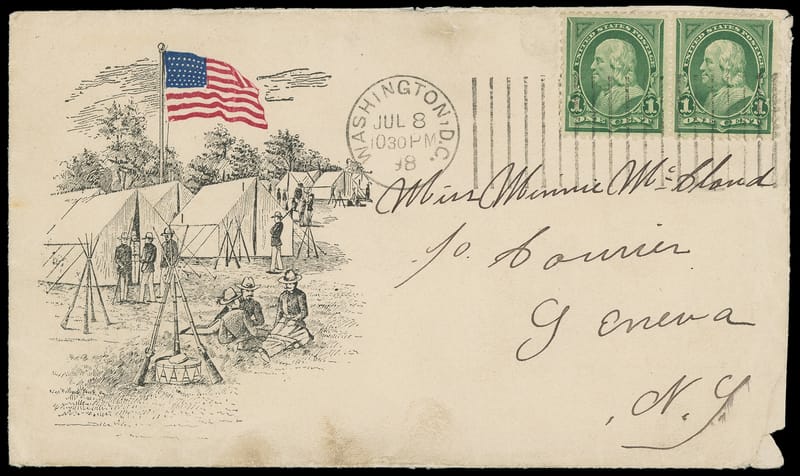 UNITED STATES POSTAGE
1 1
ONE CENT
UNITED STATES POSTAGE
1 1
ONE CENT
WASHINGTON, D.C.
JUL 8
1030 PM
'98
Miss Minnie McCloud
c/o Courier
Geneva
N.Y.